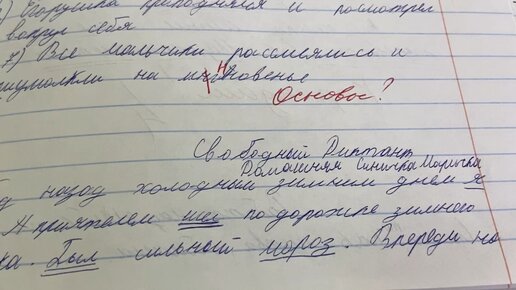 ) Егорушка приподнялся и посмотрел
вокруг себя
7) Все мальчики рассмеялись и
умолкли на мгновенье
н
Основы?
Свободный Диктант
Домашняя Синичка Маричка
у назад холодным зимним днем я
и приятелем шёл по дорожке зимнего
ка. Был сильный мороз. Впереди на